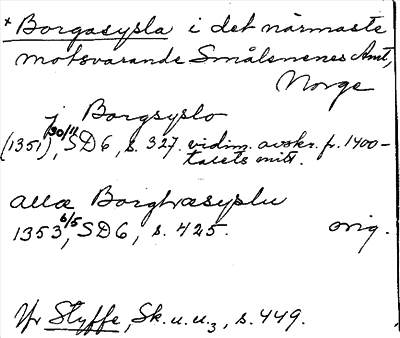 * Borgasysla i det närmaste
motsvarande Smålenenes Amt,
Norge
j Borgsyslo
(1351) 30/11, SD6, s. 327. vidim. avskr. fr. 1400-
talets mitt.
allæ Borghæsyslu
1353 6/5, SD6, s. 425. orig.
Jfr Styffe, Sk.u.u.3, s. 449.